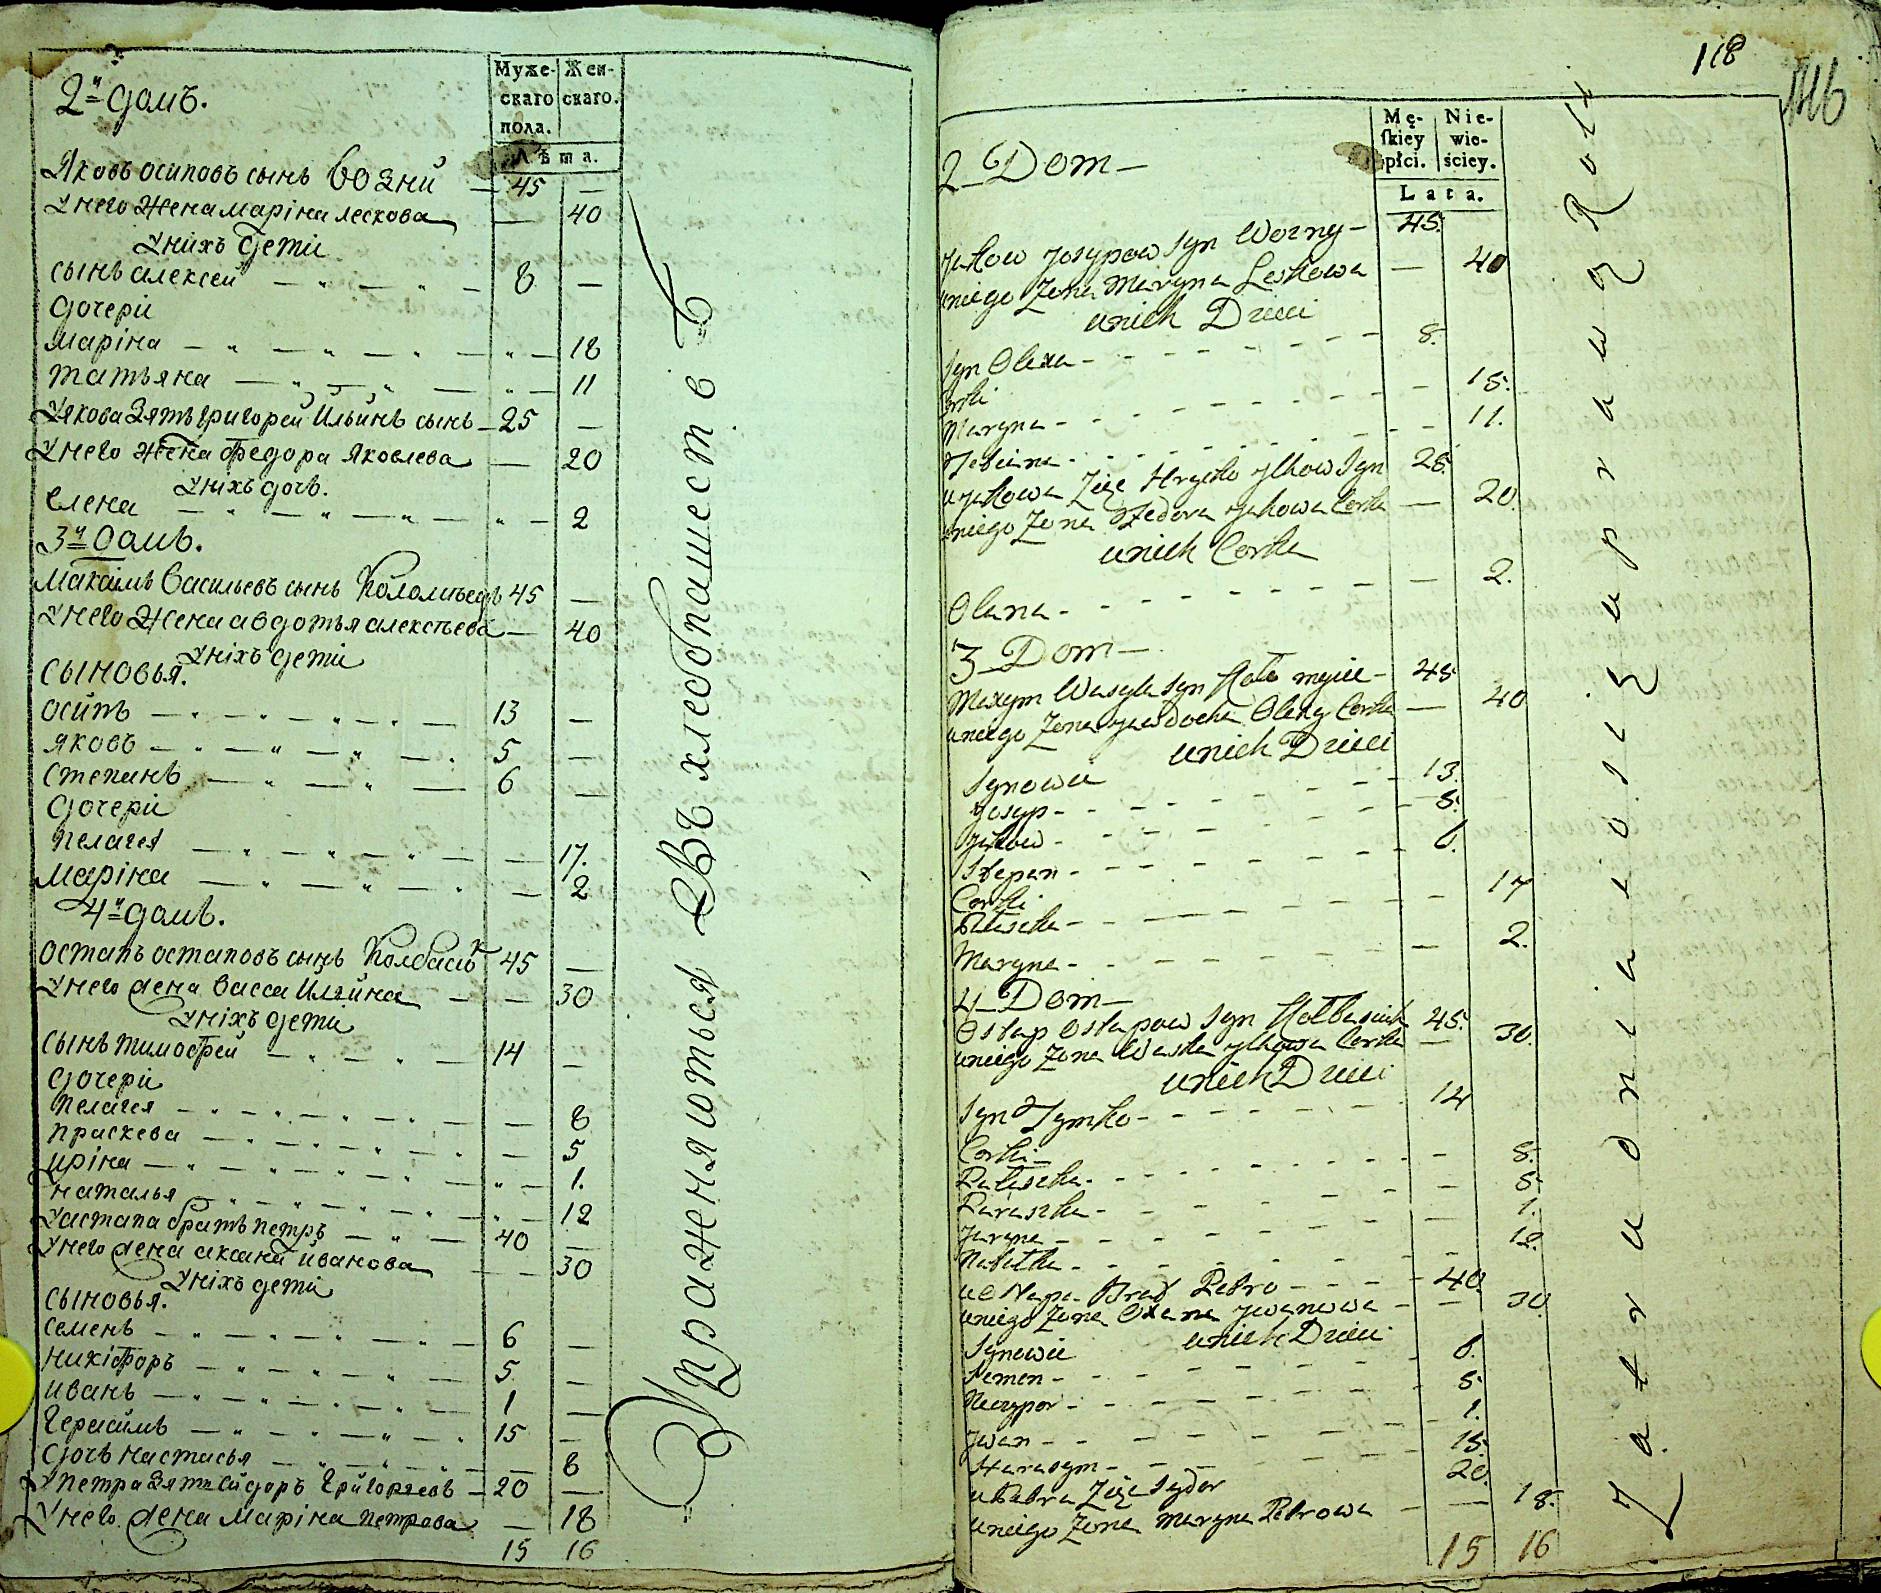 2й домъ.
Муже-
скаго
пола.
Жен-
скаго.
Лѣта.
Яковъ осиповъ сынъ Возний — 45 —
у него жена маріна лескова — 40
у нихъ дети
сынъ алексей — 8 —
дочери
маріна — 18
татьяна — 11
у якова зять григорей ильинъ сынъ — 25 —
у него жена федора яковлева — 20
у ніхъ дочь.
елена — 2
3й домъ.
максимъ васильевъ сынъ Коломыецъ 45 —
у него жена авдотья алексѣева — 40
у ніхъ дети
сыновья.
осипъ — 13 —
яковъ — 5 —
степанъ — 6 —
дочери
пелагея — 17.
маріна — 2
4й домъ.
остапъ остаповъ сынъ Колбасюк 45 —
у него жена васса ильйна — 30
у ніхъ дети
сынъ тимофей — 14 —
дочери
пелагея — 8
праскева — 5
иріна — 1.
наталья — 12
у астапа братъ петръ — 40 —
у него жена аксана иванова — 30
у ніхъ дети
сыновья.
семенъ — 6 —
никіфоръ — 5 —
иванъ — 1 —
герасимъ — 15 —
дочь настасья — 8
у петра зять сидоръ григорьевъ — 20 —
у него жена маріна петрова — 18
15 16
Упражняються Въ хлебопашестве
118
2 Dom —
Mę-
skiey
płci.
Nie-
wie-
ściey.
Lata.
Jakow Josypow Syn Wozny — 45.
uniego Zona Maryna Leskowa — 40
unich Dzieci
Syn Olexa — 8.
Corki
Maryna — 18.
Tetiana — 11.
u Jakowa Zięć Hryćko Jlkow Syn 25.
uniego Zona Fedora Jakowa Corka — 20.
unich Corka
Olena — 2.
3 Dom —
Maxym Wasyla Syn Kołomyiec — 45
uniego Zona Jewdocha Olexy Corka — 40
unich Dzieci
Synowie
Josyp — 13.
Jakow — 5.
Stepan — 6.
Corki
Pałaszka — 17
Maryna — 2.
4 Dom —
Ostap Ostapow Syn Kołbasiuk 45.
uniego Zona Waska Jlkowa Corka — 30.
unich Dzieci
Syn Tymko — 14
Corki —
Pałaszka — 8.
Paraszka — 5.
Jaryna — 1.
Natalka — 12.
u Ostapa Brat Petro — 40.
uniego Zona Oxana Jwanowa — 30
unich Dzieci
Synowie
Semen — 6.
Neczypor — 5.
Jwan — 1.
Harasym — 15.
u Petra Zięć Sydor 20.
uniego Zona Maryna Petrowa — 18.
15 16
Zatrudniaiąsię uprawą Roli